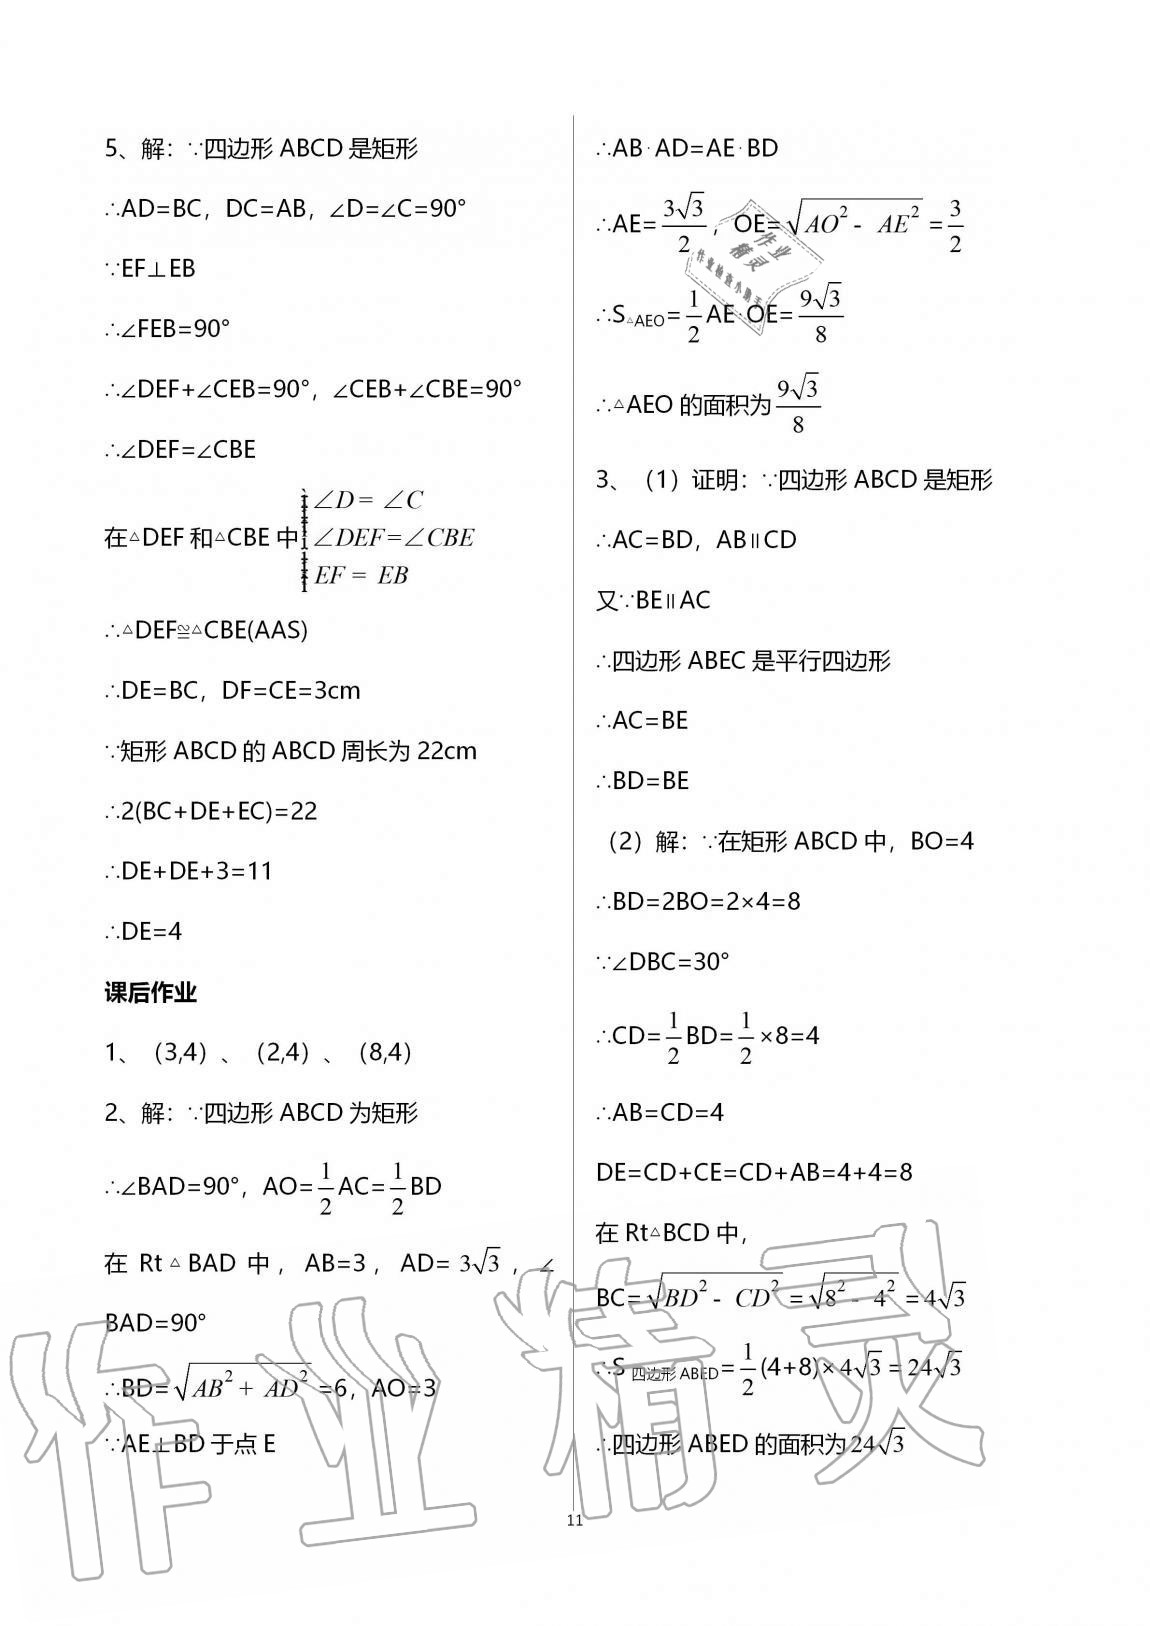 5、解：∵四边形 ABCD 是矩形
∴AD=BC，DC=AB，∠D=∠C=90°
∵EF⊥EB
∴∠FEB=90°
∴∠DEF+∠CEB=90°，∠CEB+∠CBE=90°
∴∠DEF=∠CBE
∠D = ∠C
在△DEF 和△CBE 中 ∠DEF=∠CBE
EF = EB
∴△DEF≌△CBE(AAS)
∴DE=BC，DF=CE=3cm
∵矩形 ABCD 的 ABCD 周长为 22cm
∴2(BC+DE+EC)=22
∴DE+DE+3=11
∴DE=4
课后作业
1、（3,4）、（2,4）、（8,4）
2、解：∵四边形 ABCD 为矩形
∴∠BAD=90°，AO=1/2 AC=1/2 BD
在 Rt△BAD 中，AB=3，AD=3√3，∠
BAD=90°
∴BD=√(AB²+ AD²)=6，AO=3
∵AE⊥BD 于点 E
∴AB·AD=AE·BD
∴AE=3√3/2，OE=√(AO²- AE²)=3/2
∴S△AEO=1/2 AE·OE=9√3/8
∴△AEO 的面积为 9√3/8
3、（1）证明：∵四边形 ABCD 是矩形
∴AC=BD，AB∥CD
又∵BE∥AC
∴四边形 ABEC 是平行四边形
∴AC=BE
∴BD=BE
（2）解：∵在矩形 ABCD 中，BO=4
∴BD=2BO=2×4=8
∵∠DBC=30°
∴CD=1/2 BD=1/2×8=4
∴AB=CD=4
DE=CD+CE=CD+AB=4+4=8
在 Rt△BCD 中，
BC=√(BD²- CD²)=√(8²- 4²)=4√3
∴S四边形 ABED=1/2(4+8)×4√3=24√3
∴四边形 ABED 的面积为 24√3
11
作业
精灵
作业检查小助手
作业精灵